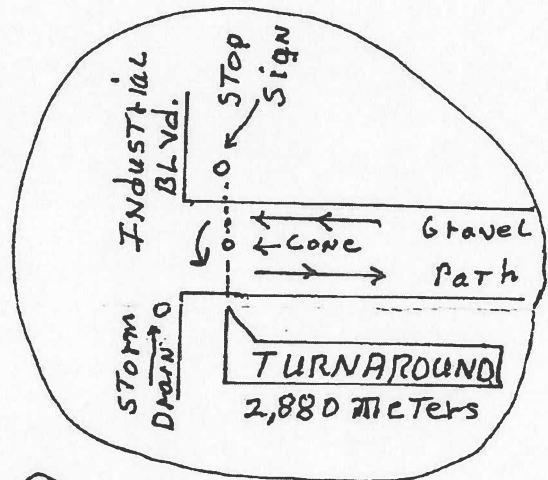 Industrial
BLVd.
STOP
Sign
Gravel
Cone
Path
STorm
Drain
TURNAROUND
2,880 meTers